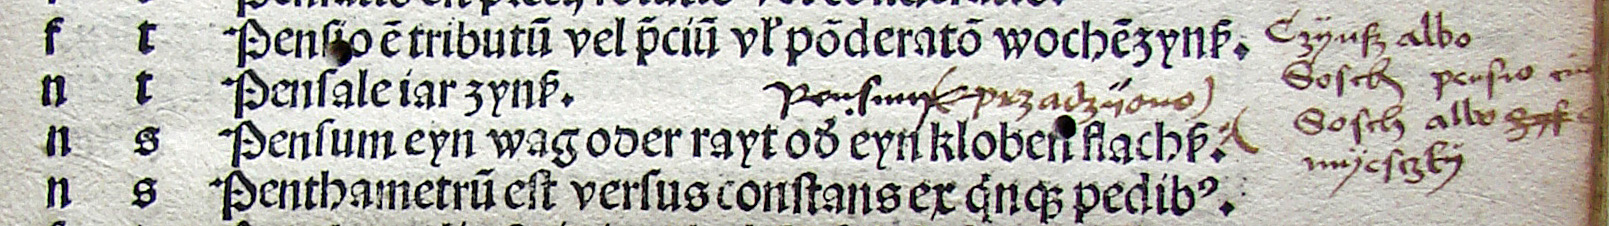 f t Pensio ē tributū vel p̄ciū vł põderatō wochēzynß. Czÿnsz albo
n t Pensale iar zynß. Pensum (przadzÿono) Sosch pensio
n s Pensum eyn wag oder rayt od̓ eyn kloben flachß. Sosch albo
mÿesczkÿ
n s Penthametrū est versus constans ex q̇nqꝫ pedibꝰ.